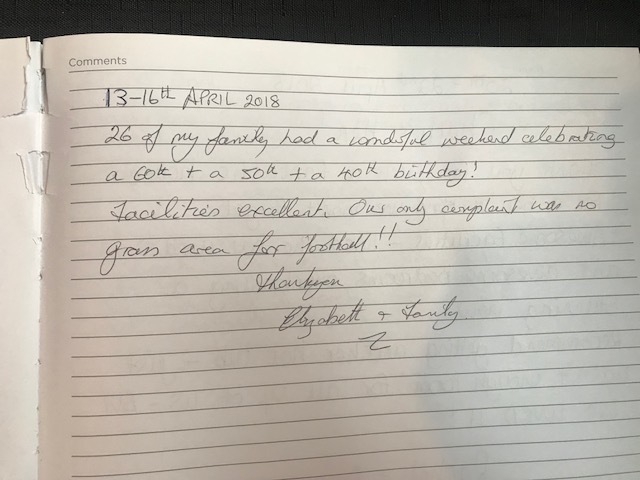 Comments
13-16th APRIL 2018
26 of my family had a wonderful weekend celebrating
a 60th + a 50th + a 40th birthday!
Facilities excellent. Our only complaint was no
grass area for football!!
Thankyou
Elizabeth + Family